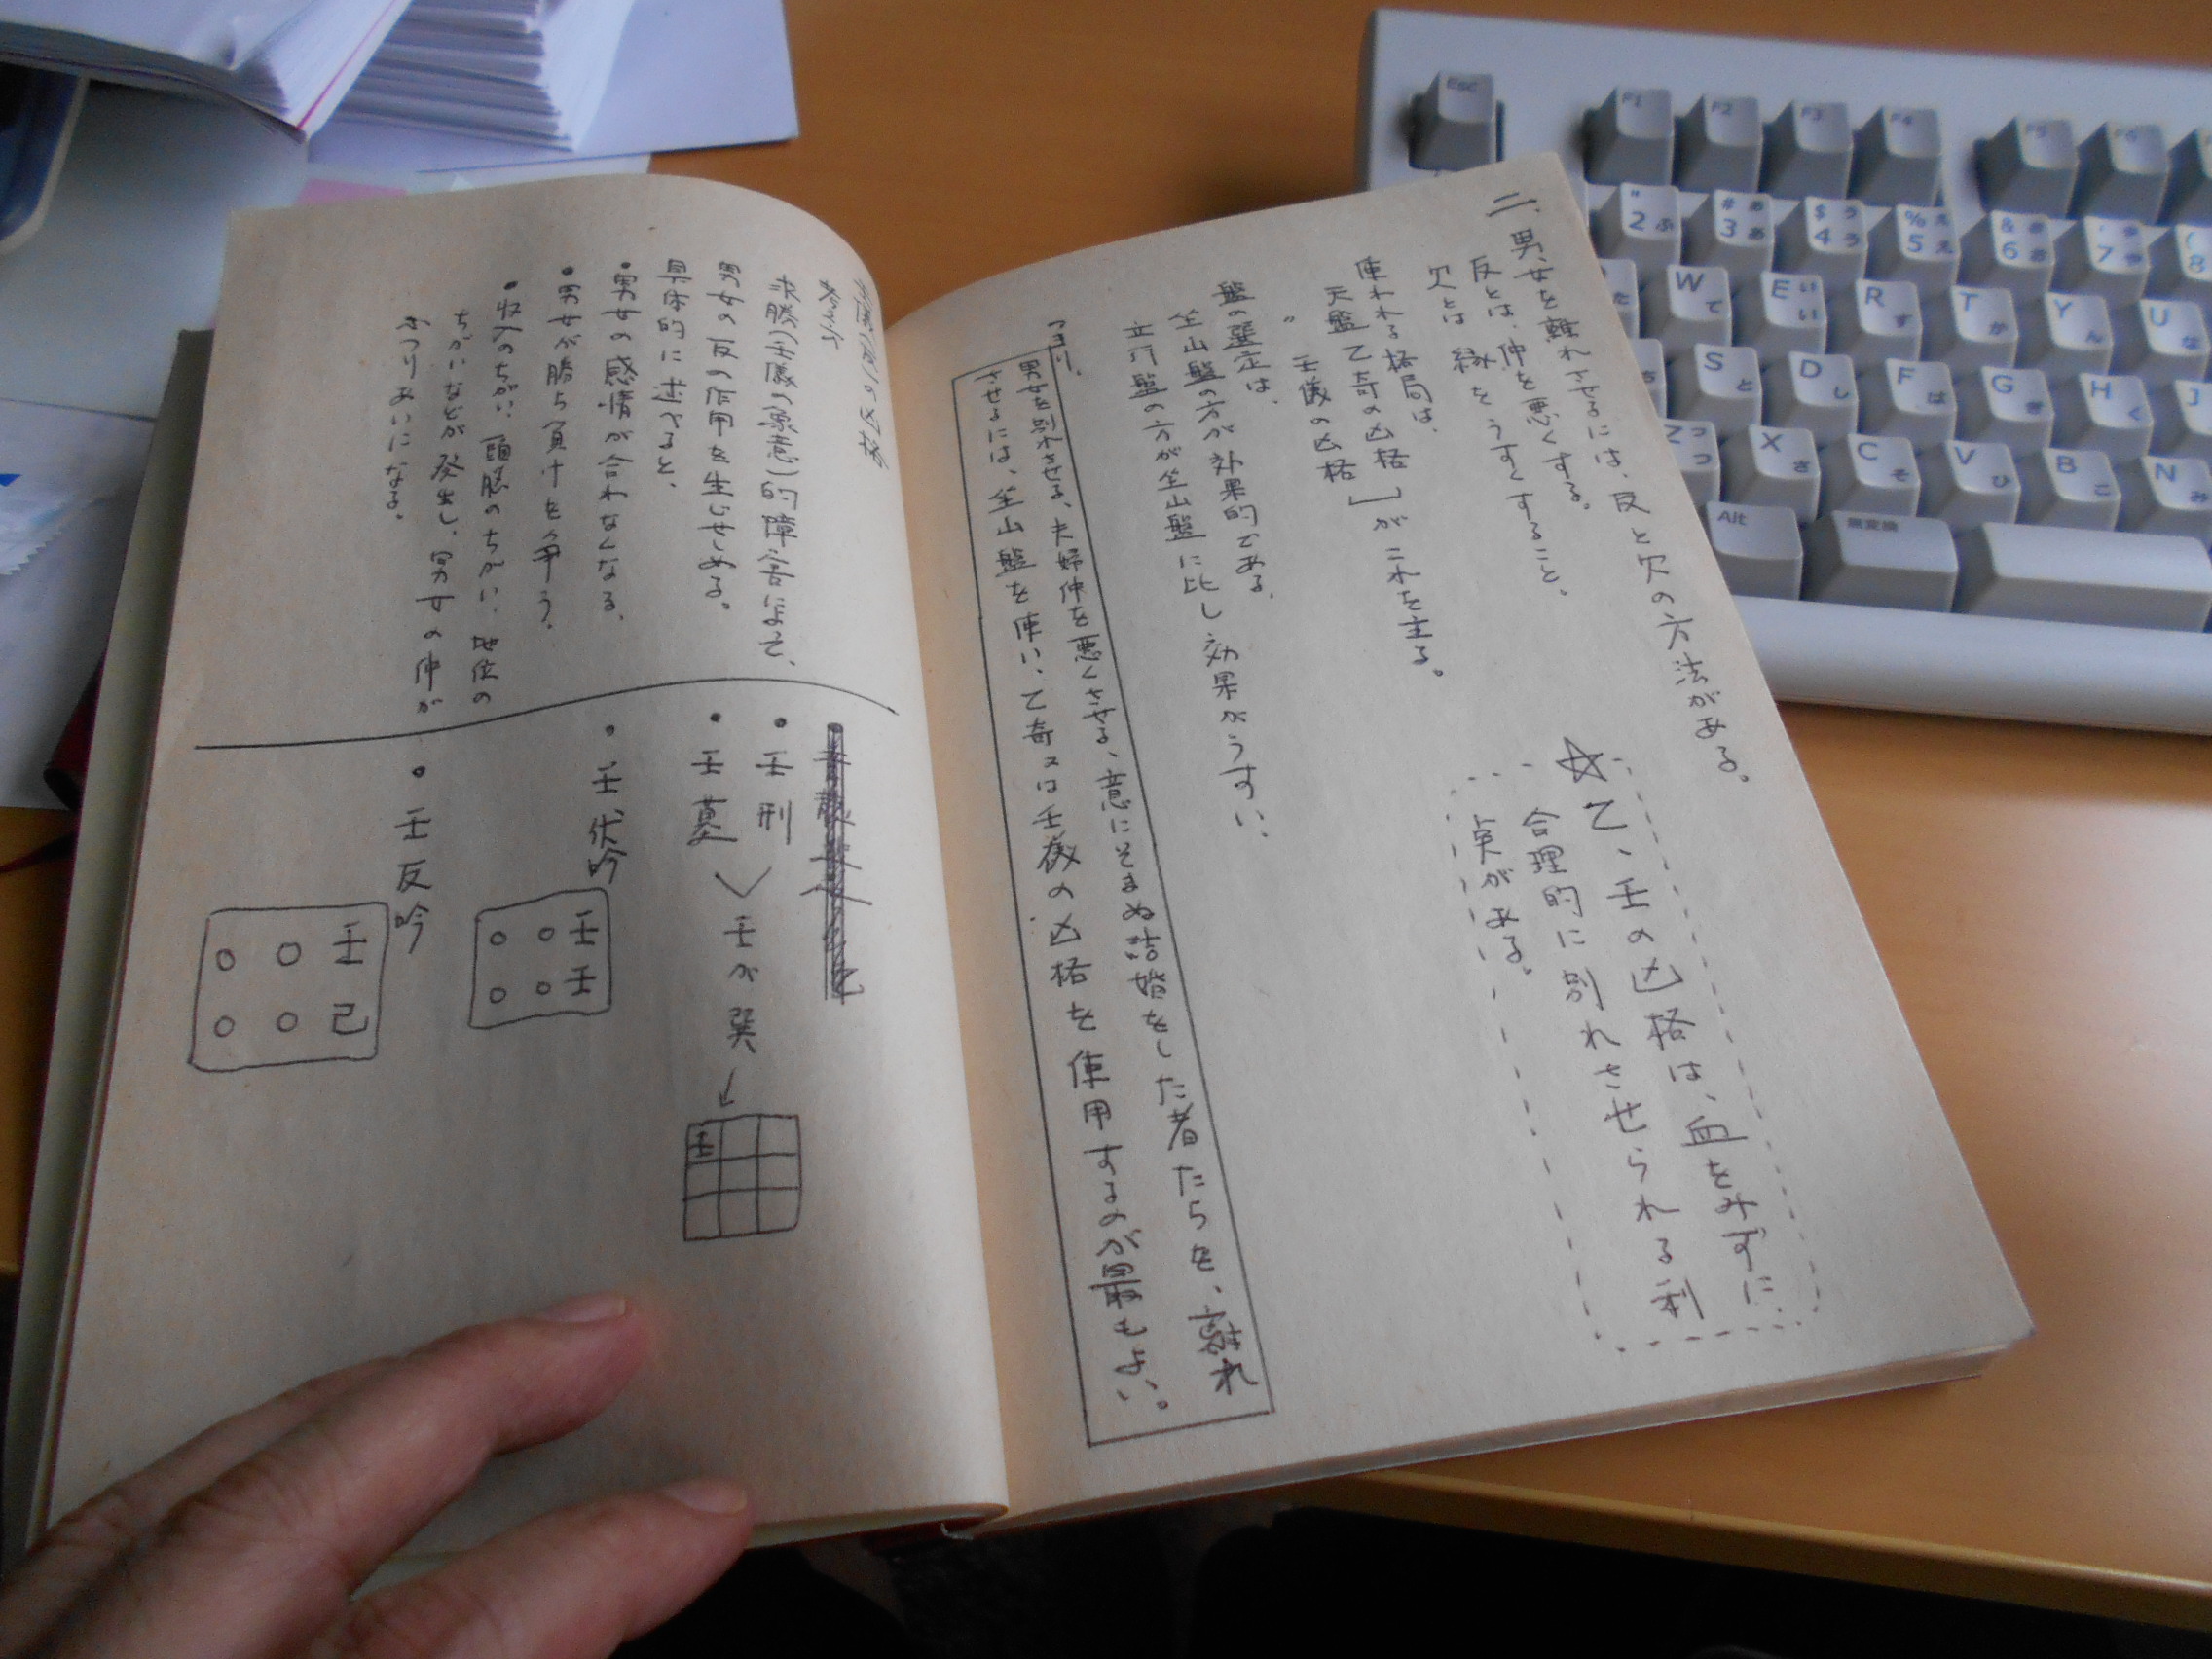 二、男女を離れさせるには、反と欠の方法がある。
反とは、仲を悪くする。
欠とは縁をうすくすること。
使われる格局は、
天盤乙奇の凶格」がこれを主る。
〃 壬儀の凶格
盤の選定は、
坐山盤の方が効果的である。
立行盤の方が坐山盤に比し効果がうすい、
つまり、
男女を別れさせる、夫婦仲を悪くさせる、意にそまぬ結婚をした者たちを、離れ
させるには、坐山盤を使い、乙奇又は壬儀の凶格を使用するのが最もよい。
☆乙、壬の凶格は、血をみずに
合理的に別れさせられる利
実がある。
の凶格
決勝(壬儀の象意)的障害によって、
男女の反の作用を生じせしめる。
具体的に述べると、
・男女の感情が合わなくなる、
・男女が勝ち負けを争う。
・収入のちがい、頭脳のちがい、地位の
ちがいなどが発生し、男女の仲が
ふつりあいになる。
・壬刑
・壬墓
壬が巽
壬
・壬伏吟
壬 壬
○ ○
○ ○
・壬反吟
壬 己
○ ○
○ ○
Esc
F1
F2
F3
F4
F5
F6
" 2 ふ
# あ 3 あ
$ う 4 う
% え 5 え
& お 6 お
' や 7 や
( 8
W て
E い い
R す
T か
Y ん
U な
S と
D し
F は
G き
H く
J
Z つ つ
X さ
C そ
V ひ
B こ
N み
Alt
無変換